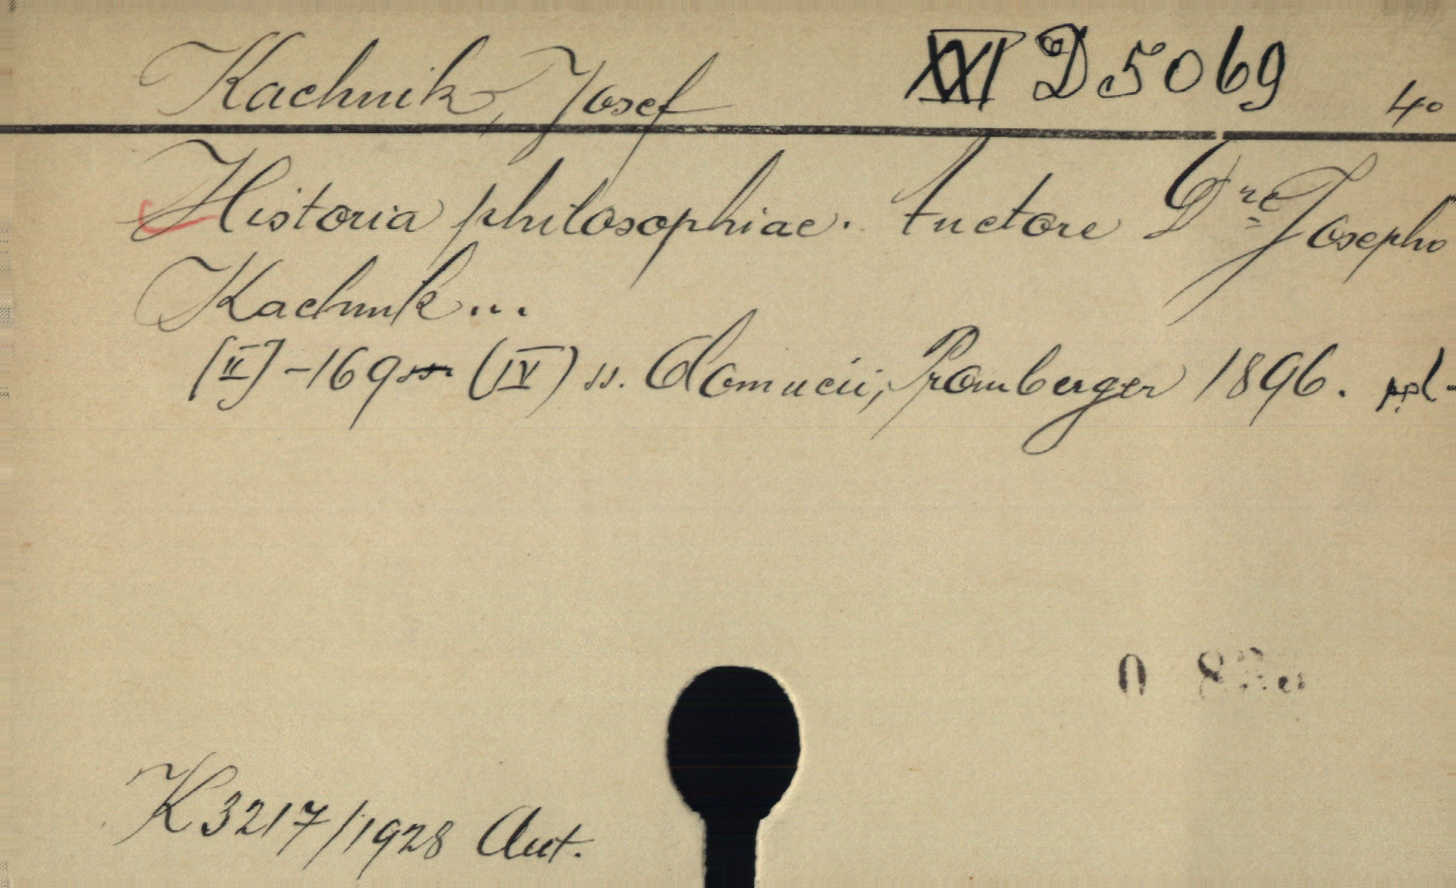 Kachnik, Josef XXI D 5069 4°
Historia philosophiae. Auctore Dre Josepho
Kachnik...
[II]-169 (IV) s. Olomucii, Promberger 1896. ppl-
0 8
K 3217/1928 Aut.